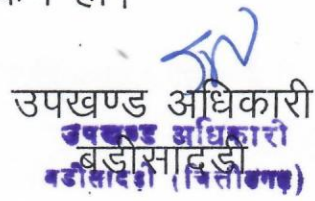 उपखण्ड अधिकारी
उपखण्ड अधिकारी
बडीसादडी
बडीसादड़ी (चित्तौडगढ़)